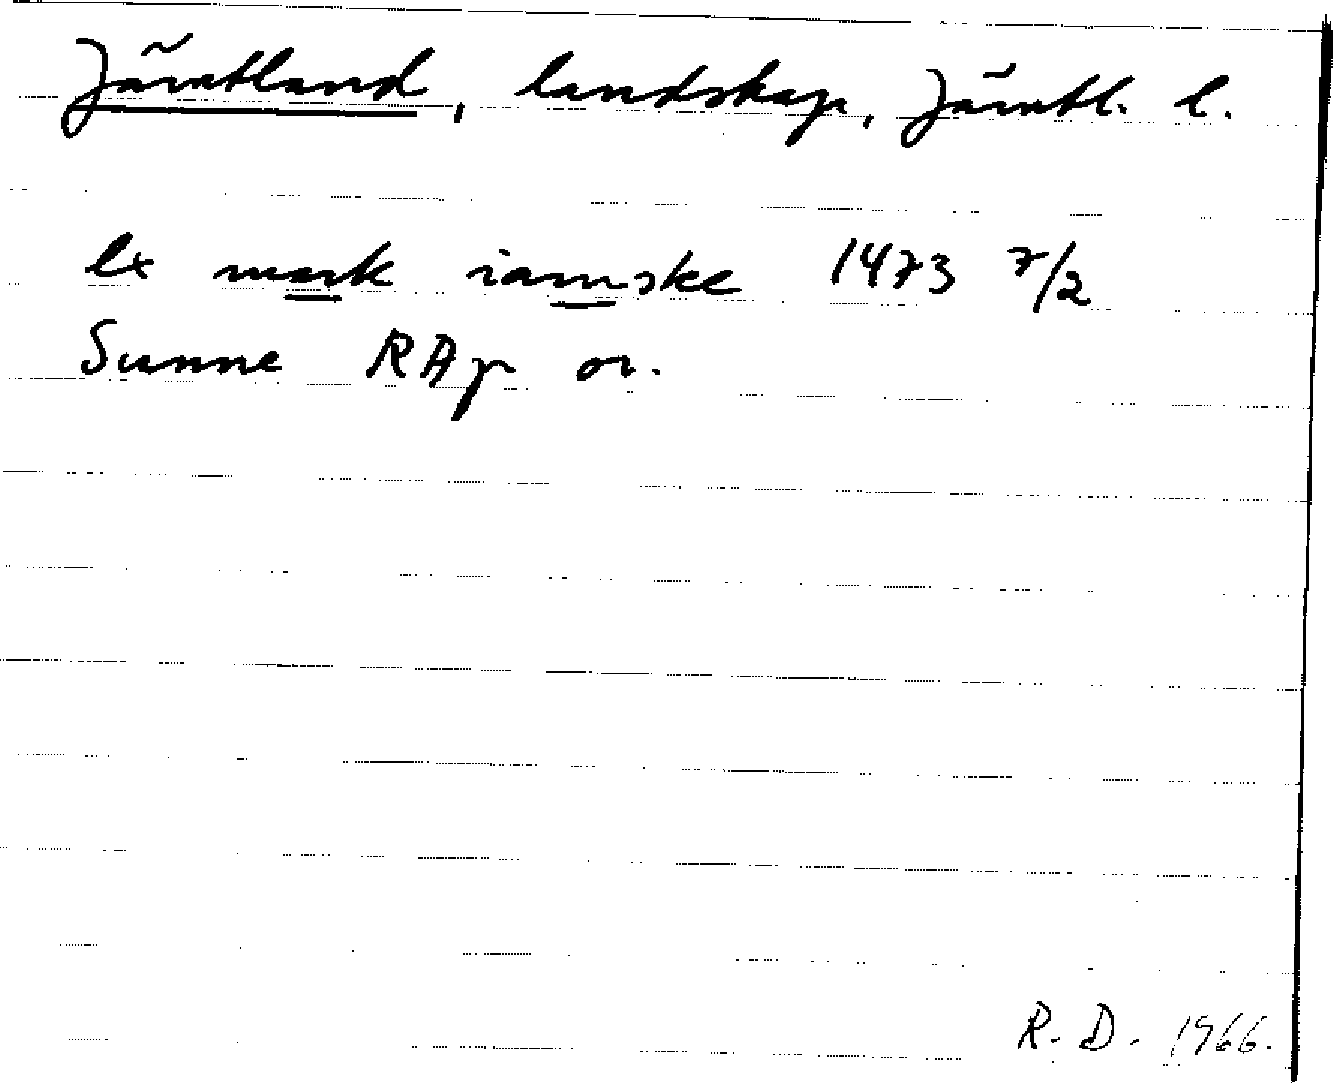 Jämtland, landskap, Jämtl. l.
lx mark iamske 1473 7/2
Sunne RAp or.
R. D. 1966.